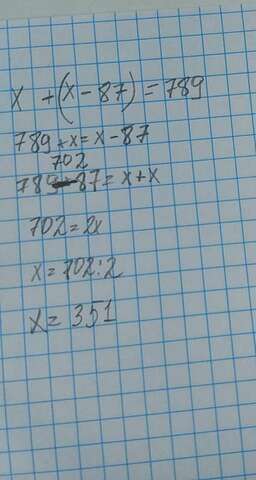 x + (x - 87) = 789
789 - x = x - 87
702
789 - 87 = x + x
702 = 2x
x = 702 : 2
x = 351